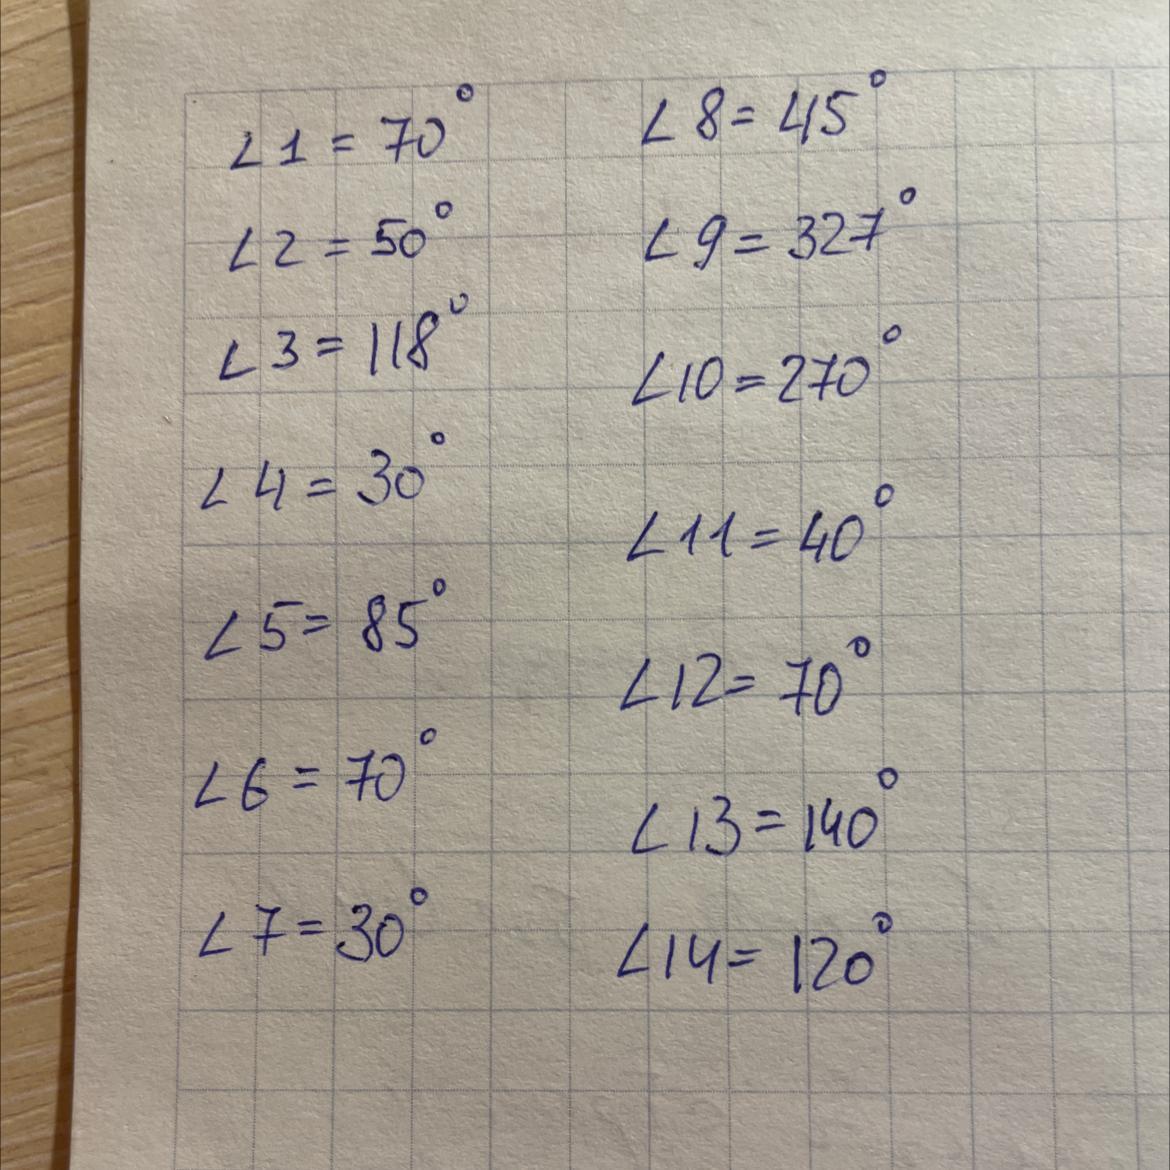 ∠1 = 70°
∠2 = 50°
∠3 = 118°
∠4 = 30°
∠5 = 85°
∠6 = 70°
∠7 = 30°
∠8 = 45°
∠9 = 327°
∠10 = 270°
∠11 = 40°
∠12 = 70°
∠13 = 140°
∠14 = 120°